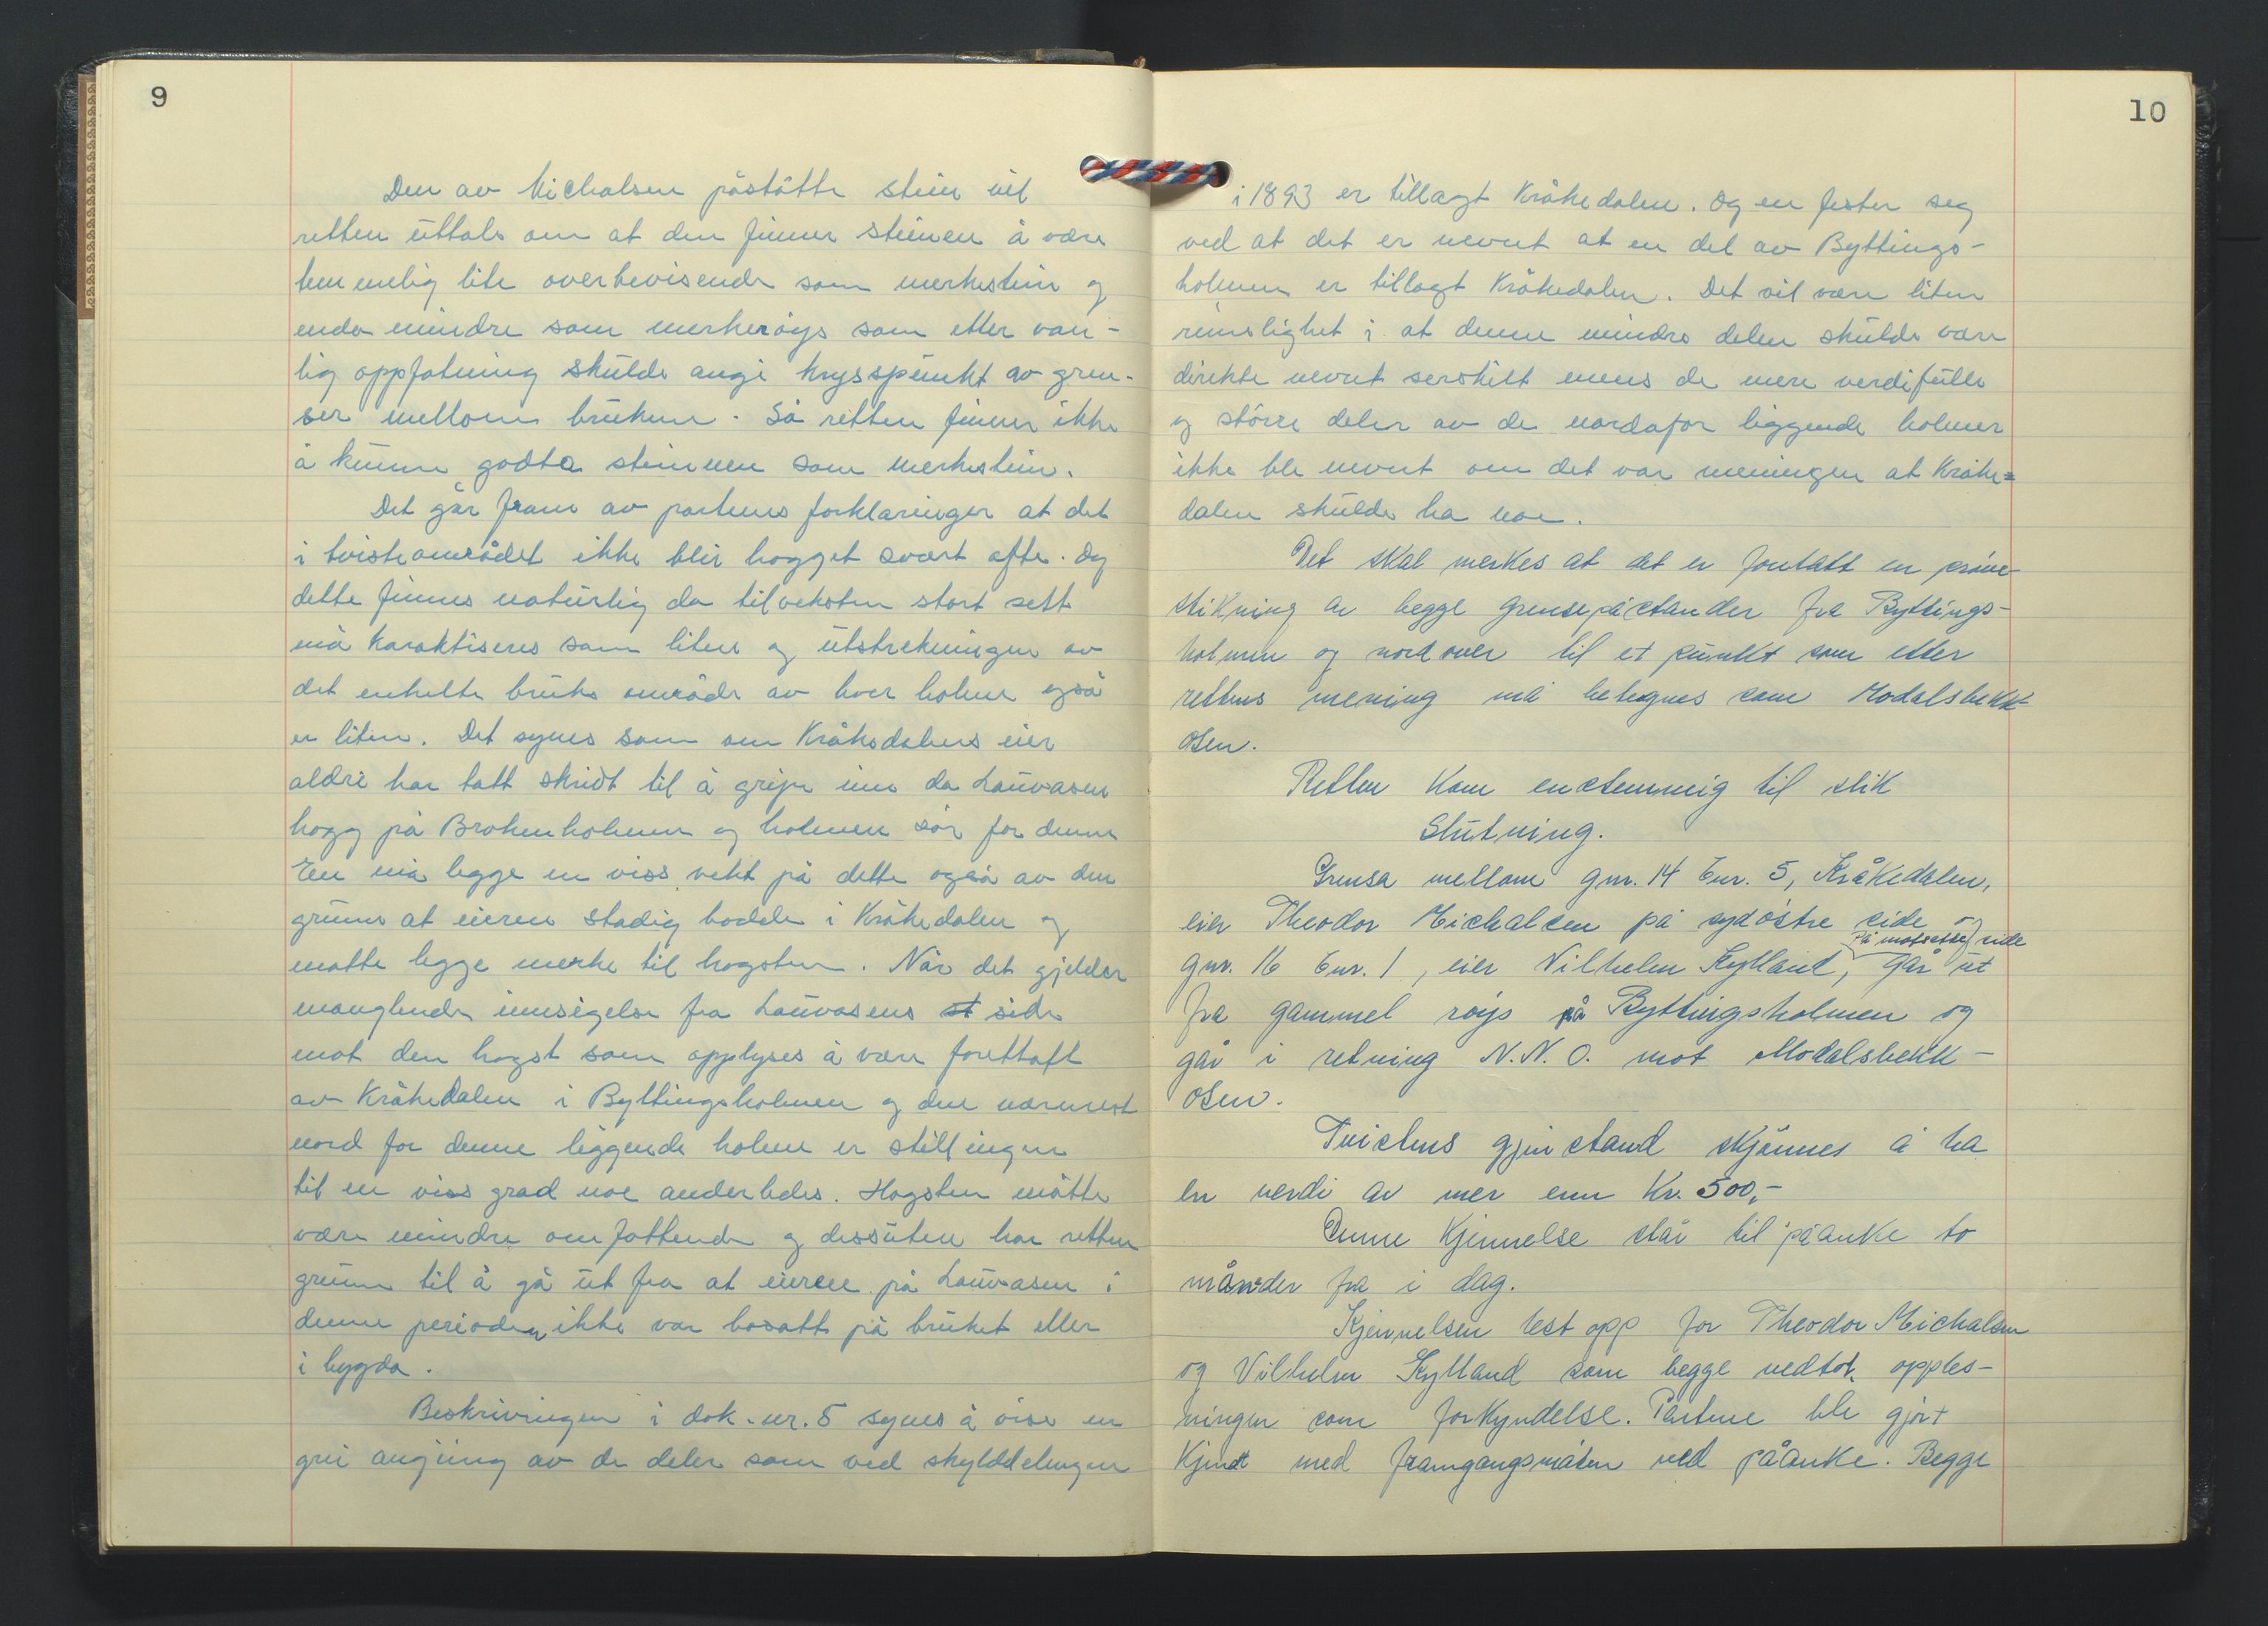 9
Den av Michalsen påståtte stein vil
retten uttale om at den finner steinen å være
temmelig lite overbevisende som merkestein og
enda mindre som merkerøys som etter van-
lig oppfatning skulde angi krysspunkt av gren-
ser mellom brukene. Så retten finner ikke
å kunne godta steinen som merkestein.
Det går fram av partenes forklaringer at det
i tvisteområdet ikke blir hogget svært ofte. Og
dette finnes naturlig da tilveksten stort sett
må karaktiseres som liten og utstrekningen av
det enkelte bruks område av hver holme også
er liten. Det synes som om Kråkedalens eier
aldri har tatt skridt til å gripe inn da Lauvåsen
hogg på Brokenholmen og holmen sør for denne
En må legge en viss vekt på dette også av den
grunn at eieren stadig bodde i Kråkedalen og
måtte legge merke til hogsten. Når det gjelder
manglende innsigelse fra Lauvåsens st side
mot den hogst som opplyses å være forettatt
av Kråkedalen i Byttingsholmen og den nærmest
nord for denne liggende holme er stillingen
til en viss grad noe anderledes. Hogsten måtte
være mindre omfattende og dessuten har retten
grunn til å gå ut fra at eieren på Lauvåsen i
denne perioden ikke var bosatt på bruket eller
i bygda.
Beskrivningen i dok. nr. 5 synes å vise en
grei angiing av de deler som ved skylddelingen
10
i 1893 er tillagt Kråkedalen. Og en fester seg
ved at det er nevnt at en del av Byttings-
holmen er tillagt Kråkedalen. Det vil være liten
rimslighet i at denne mindre delen skulde være
direkte nevnt serskilt mens de mere verdifulle
og større deler av de nordafor liggende holmer
ikke ble nevnt om det var meningen at Kråke=
dalen skulde ha noe.
Det skal merkes at det er foretatt en prøve-
stikning av begge grensepåstander fra Byttings-
holmen og nordover til et punkt som etter
rettens mening må betegnes som Modalsbekk-
osen.
Retten kom enstemmig til slik
Slutning.
Grensa mellom gnr. 14 bnr. 5, Kråkedalen,
eier Theodor Michalsen på sydøstre side og
på motsatt side
gnr. 16 bnr. 1, eier Vilhelm Kylland, går ut
fra gammel røys på Byttingsholmen og
går i retning N.N.O. mot Modalsbekk-
osen.
Tvistens gjenstand skjønnes å ha
en verdi av mer enn Kr. 500,-
Denne kjennelse står til påanke to
måneder fra i dag.
Kjennelsen lest opp for Theodor Michalsen
og Vilhelm Kylland som begge vedtok opples-
ningen som forkyndelse. Partene ble gjort
kjendt med framgangsmåten ved påanke. Begge